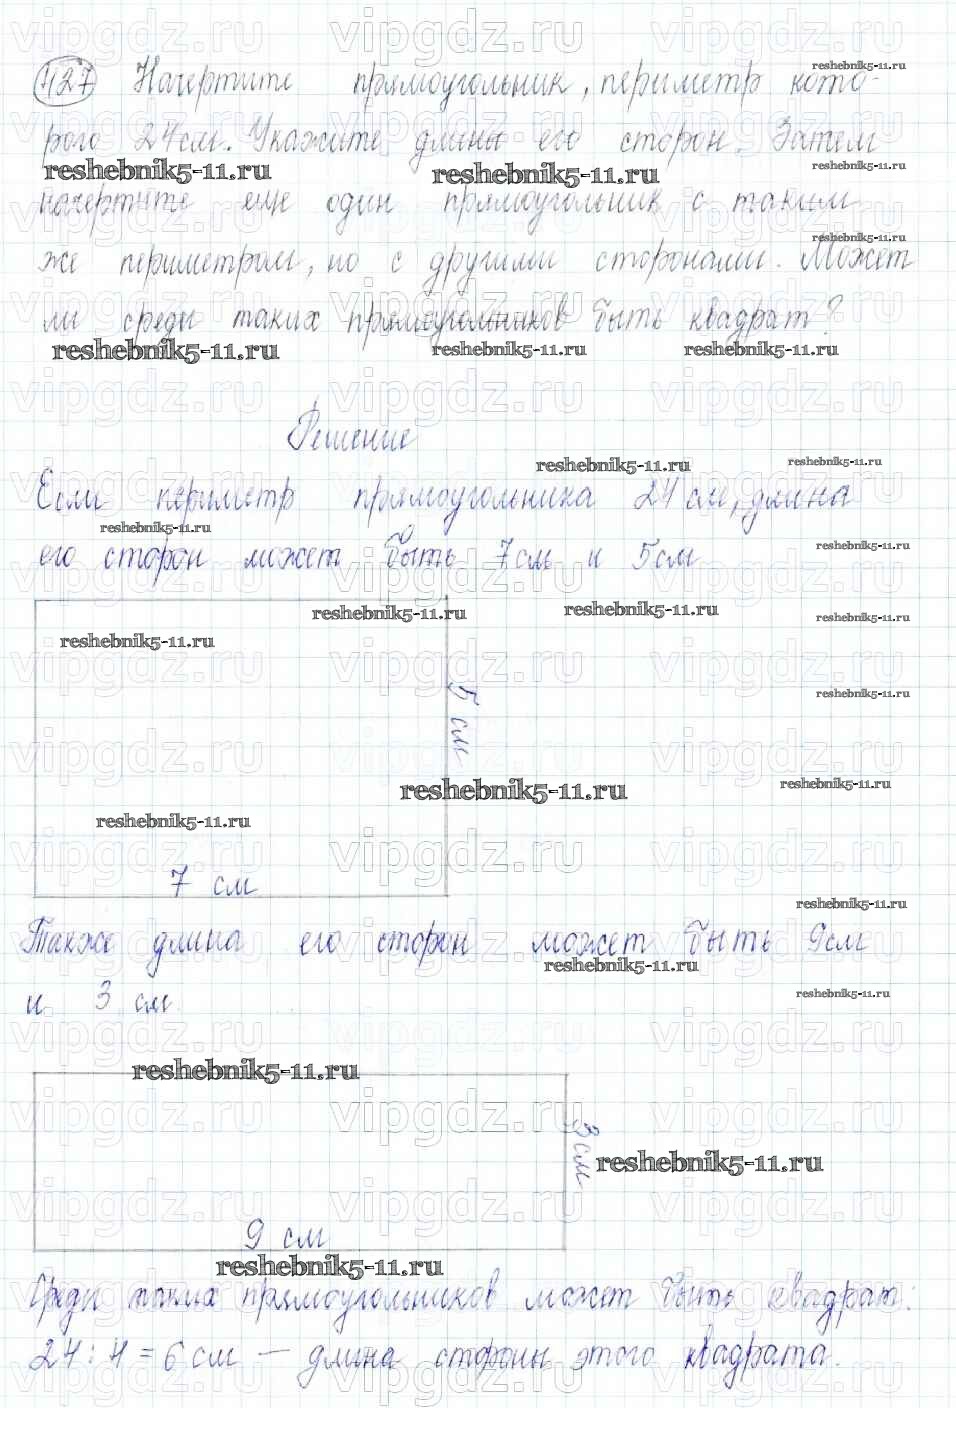 427 Начертите прямоугольник, периметр кото-
рого 24 см. Укажите длины его сторон. Затем
начертите еще один прямоугольник с таким
же периметром, но с другими сторонами. Может
ли среди таких прямоугольников быть квадрат?
Решение
Если периметр прямоугольника 24 см, длина
его сторон может быть 7 см и 5 см
5 см
7 см
Также длина его сторон может быть 9 см
и 3 см
3 см
9 см
Среди таких прямоугольников может быть квадрат:
24 : 4 = 6 см — длина стороны этого квадрата.
reshebnik5-11.ru
vipgdz.ru